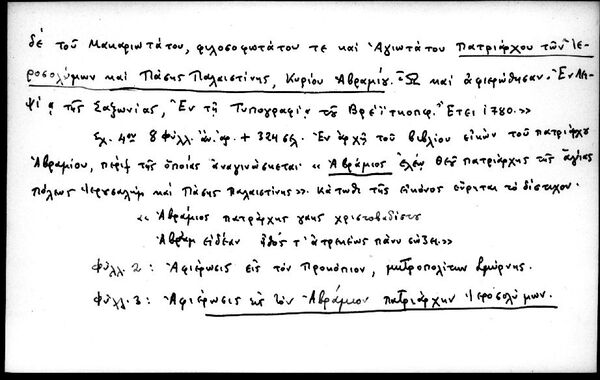 δὲ τοῦ Μακαριωτάτου, φιλοσοφωτάτου τε καὶ Ἁγιωτάτου Πατριάρχου τῶν Ἱε-
ροσολύμων καὶ Πάσης Παλαιστίνης, Κυρίου Ἀβραμίου. Ὧ καὶ ἀφιερώθησαν. Ἐν Λει-
ψίᾳ τῆς Σαξωνίας, Ἐν τῇ Τυπογραφίᾳ τοῦ Βρέϊτκοπφ. Ἔτει 1780.»
Σχ. 4ον 8 φύλλ. ἀν. ἀρ. + 324 σελ. Ἐν ἀρχῇ τοῦ βιβλίου εἰκὼν τοῦ πατριάρχου
Ἀβραμίου, πέριξ τῆς ὁποίας ἀναγινώσκεται «Ἀβράμιος ἐλέῳ Θεοῦ πατριάρχης τῆς ἁγίας
πόλεως Ἱερουσαλὴμ καὶ Πάσης Παλαιστίνης». Κάτωθι τῆς εἰκόνος εὕρηται τὸ δίστιχον.
«Ἀβράμιος πατράρχης γαίης χριστοβαδίστου
Ἀβραὰμ εἰδέαν ἦθός τ' ἀτρεκέως πάνυ σώζει.»
Φύλλ. 2: Ἀφιέρωσις εἰς τὸν Προκόπιον, μητροπολίτην Σμύρνης.
Φύλλ. 3: Ἀφιέρωσις εἰς τὸν Ἀβράμιον πατριάρχην Ἱεροσολύμων.